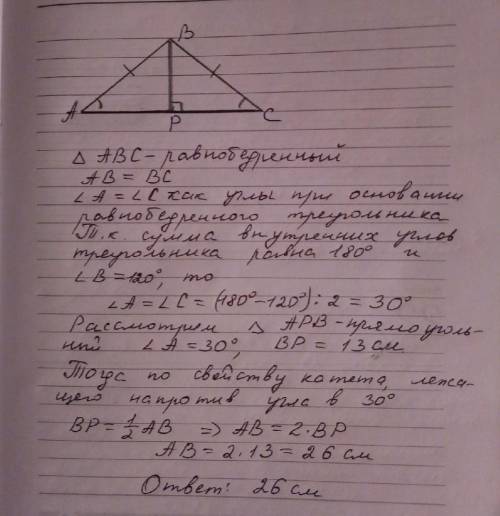 B
A
P
C
△ ABC - равнобедренный
AB = BC
∠A = ∠C как углы при основании
равнобедренного треугольника
Т.к. сумма внутренних углов
треугольника равна 180° и
∠B = 120°, то
∠A = ∠C = (180° - 120°) : 2 = 30°
Рассмотрим △ APB - прямоуголь-
ный ∠A = 30°, BP = 13 см
Тогда по свойству катета, лежа-
щего напротив угла в 30°
BP = 1/2 AB => AB = 2 · BP
AB = 2 · 13 = 26 см
Ответ: 26 см